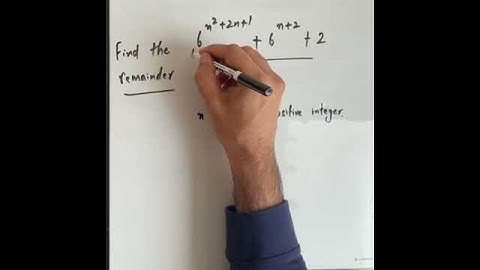 Find the remainder
6^{n²+2n+1} + 6^{n+2} + 2
n positive integer.